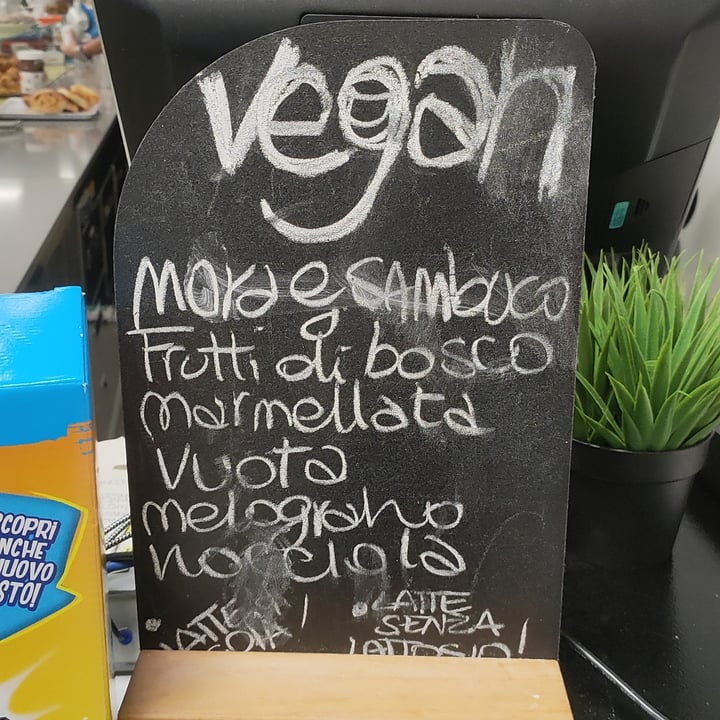 vegan
mora e sambuco
Frutti di bosco
marmellata
vuota
melograno
nocciola
• LATTE DI SOIA!
• LATTE SENZA LATTOSIO!
SCOPRI
ANCHE
NUOVO
GUSTO!